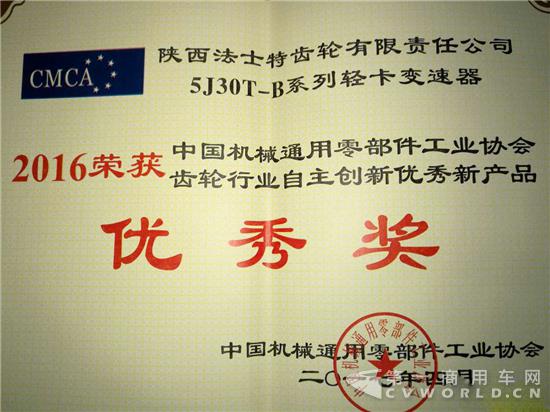 CMCA
陕西法士特齿轮有限责任公司
5J30T-B系列轻卡变速器
2016荣获
中国机械通用零部件工业协会
齿轮行业自主创新优秀新产品
优秀奖
中国机械通用零部件工业协会
二〇一七年四月
CVWORLD.CN